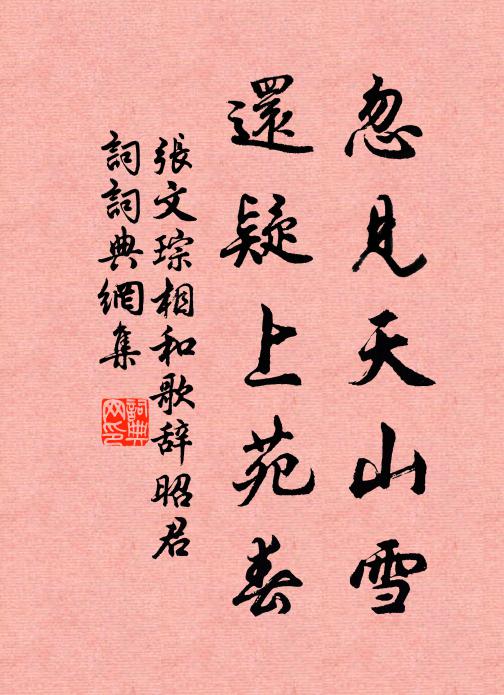 忽見天山雪
還疑上苑春
張文琮相和歌辞昭君
詞詞典網集
詞典
网印